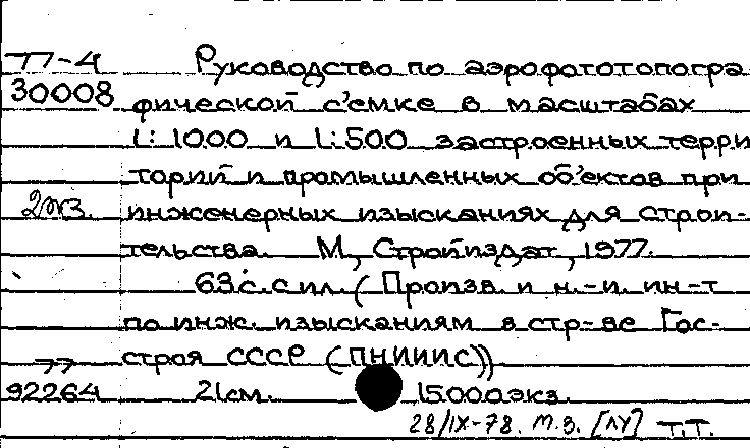 П-4 Руководство по аэрофототопогра
30008 фической с'емке в масштабах
1:1000 и 1:500 застроенных терри
торий и промышленных об'ектов при
2экз. инженерных изысканиях для строи-
тельства. М, Стройиздат, 1977.
63с. с ил. (Произв. и н.-и. ин-т
по инж. изысканиям в стр-ве Гос-
77 строя СССР (ПНИИИС))
92264 21см. 15000экз.
28/IX-78. т.з. [ЛУ] Т.Т.